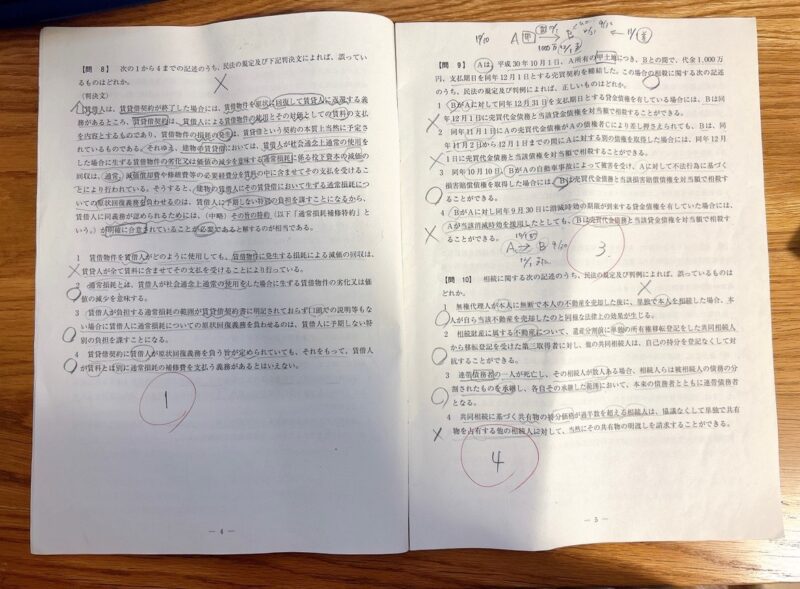 【問 8】 次の1から4までの記述のうち、民法の規定及び下記判決文によれば、誤っているものはどれか。
(判決文)
賃借人は、賃貸借契約が終了した場合には、賃借物件を原状に回復して賃貸人に返還する義
務があるところ、賃貸借契約は、賃借人による賃借物件の使用とその対価としての賃料の支払
を内容とするものであり、賃借物件の損耗の発生は、賃貸借という契約の本質上当然に予定さ
れているものである。それゆえ、建物の賃貸借においては、賃借人が社会通念上通常の使用を
した場合に生ずる賃借物件の劣化又は価値の減少を意味する通常損耗に係る投下資本の減価の
回収は、通常、減価償却費や修繕費等の必要経費分を賃料の中に含ませてその支払を受けるこ
とにより行われている。そうすると、建物の賃借人にその賃貸借において生ずる通常損耗につ
いての原状回復義務を負わせるのは、賃借人に予期しない特別の負担を課すことになるから、
賃借人に同義務が認められるためには、(中略)その旨の特約(以下「通常損耗補修特約」と
いう。)が明確に合意されていることが必要であると解するのが相当である。
1 賃借物件を賃借人がどのように使用しても、賃借物件に発生する損耗による減価の回収は、
賃貸人が全て賃料に含ませてその支払を受けることにより行っている。
2 通常損耗とは、賃借人が社会通念上通常の使用をした場合に生ずる賃借物件の劣化又は価
値の減少を意味する。
3 賃借人が負担する通常損耗の範囲が賃貸借契約書に明記されておらず口頭での説明等もな
い場合に賃借人に通常損耗についての原状回復義務を負わせるのは、賃借人に予期しない特
別の負担を課すことになる。
4 賃貸借契約に賃借人が原状回復義務を負う旨が定められていても、それをもって、賃借人
が賃料とは別に通常損耗の補修費を支払う義務があるとはいえない。
1
― 4 ―
【問 9】 Aは、平成30年10月1日、A所有の甲土地につき、Bとの間で、代金1,000万
円、支払期日を同年12月1日とする売買契約を締結した。この場合の相殺に関する次の記述
のうち、民法の規定及び判例によれば、正しいものはどれか。
1 BがAに対して同年12月31日を支払期日とする貸金債権を有している場合には、Bは同
年12月1日に売買代金債務と当該貸金債権を対当額で相殺することができる。
2 同年11月1日にAの売買代金債権がAの債権者により差し押さえられても、Bは、同
年11月2日から12月1日までの間にAに対する別の債権を取得した場合には、同年12月
1日に売買代金債務と当該債権を対当額で相殺することができる。
3 同年10月10日、BがAの自動車事故によって被害を受け、Aに対して不法行為に基づく
損害賠償債権を取得した場合には、Bは売買代金債務と当該損害賠償債権を対当額で相殺す
ることができる。
4 BがAに対し同年9月30日に消滅時効の期限が到来する貸金債権を有していた場合には、
Aが当該消滅時効を援用したとしても、Bは売買代金債務と当該貸金債権を対当額で相殺す
ることができる。
3.
【問 10】 相続に関する次の記述のうち、民法の規定及び判例によれば、誤っているものは
どれか。
1 無権代理人が本人に無断で本人の不動産を売却した後に、単独で本人を相続した場合、本
人が自ら当該不動産を売却したのと同様な法律上の効果が生じる。
2 相続財産に属する不動産について、遺産分割前に単独の所有権移転登記をした共同相続人
から移転登記を受けた第三取得者に対し、他の共同相続人は、自己の持分を登記なくして対
抗することができる。
3 連帯債務者の一人が死亡し、その相続人が数人ある場合、相続人らは被相続人の債務の分
割されたものを承継し、各自その承継した範囲において、本来の債務者とともに連帯債務者
となる。
4 共同相続に基づく共有物の持分価格が過半数を超える相続人は、協議なくして単独で共有
物を占有する他の相続人に対して、当然にその共有物の明渡しを請求することができる。
4
― 5 ―